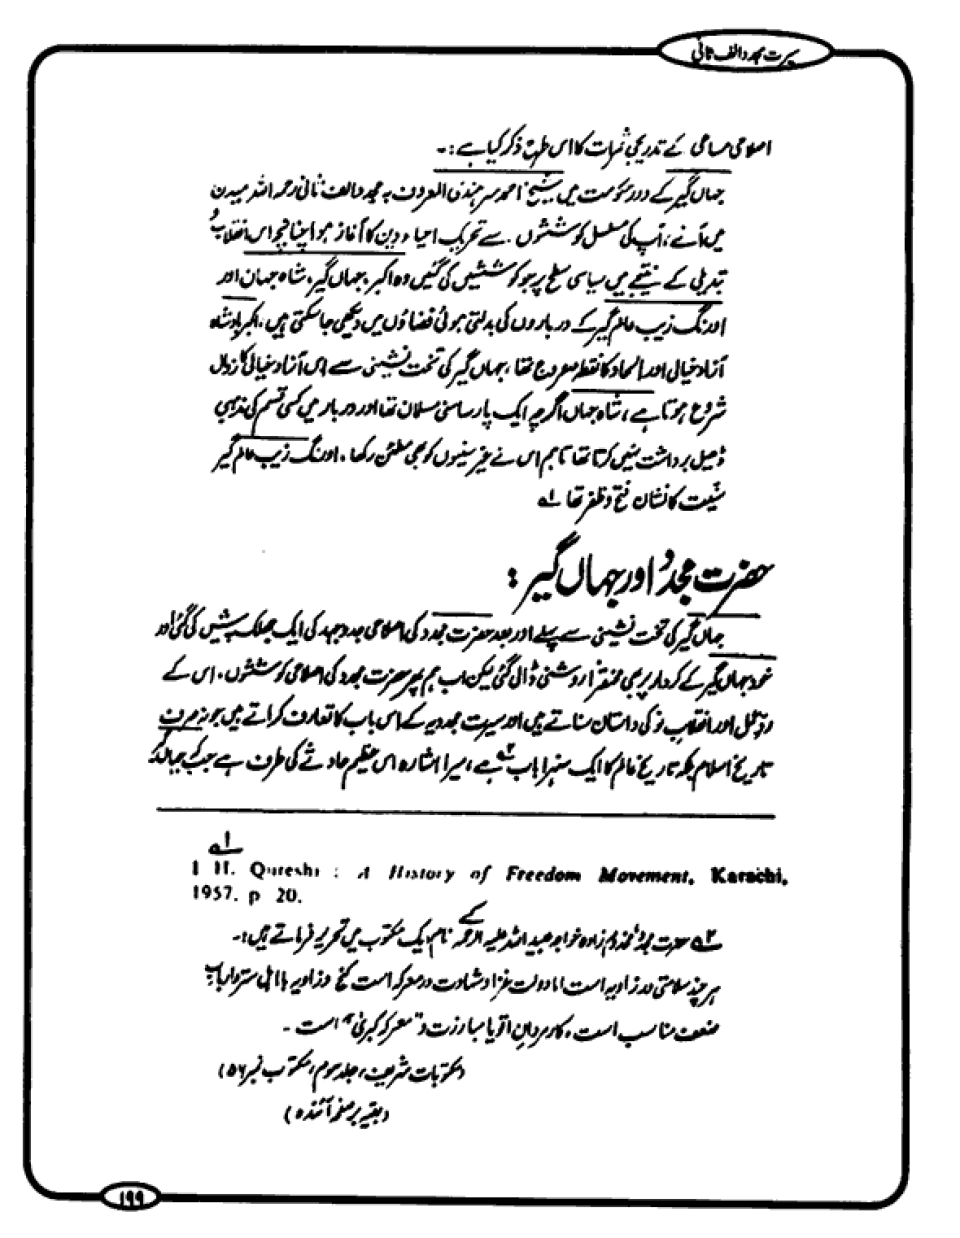 سیرت مجدد الف ثانی
اصلاحی مساعی کے تدریجی ثمرات کا اس طرح ذکر کیا ہے :۔
جہاں گیر کے دور حکومت میں شیخ احمد سرہندی المعروف بہ مجدد الف ثانی رحمہ اللہ میدان
میں آئے، آپ کی مسلسل کوششوں سے تحریک احیاءِ دین کا آغاز ہوا چنانچہ اس انقلاب و
تبدیلی کے نتیجے میں سیاسی سطح پر جو کوششیں کی گئیں وہ اکبر، جہاں گیر، شاہ جہان اور
اورنگ زیب عالم گیر کے درباروں کی بدلتی ہوئی فضاؤں میں دیکھی جا سکتی ہیں، اکبر بادشاہ
آزاد خیالی اور الحاد کا نقطۂ عروج تھا، جہاں گیر کی تخت نشینی سے اس آزاد خیالی کا زوال
شروع ہوتا ہے، شاہ جہاں اگرچہ ایک پارسا سنی مسلمان تھا اور دربار میں کسی قسم کی مذہبی
ڈھیل برداشت نہیں کرتا تھا تاہم اس نے غیر سنیوں کو بھی مطمئن رکھا، اورنگ زیب عالم گیر
سُنّیت کا نشان فتح و ظفر تھا ۱ھ
حضرت مجددؒ اور جہاں گیر :
جہاں گیر کی تخت نشینی سے پہلے اور بعد حضرت مجدد کی اصلاحی جدوجہد کی ایک جھلک پیش کی گئی اور
خود جہاں گیر کے کردار پر بھی مختصراً روشنی ڈالی گئی لیکن اب ہم پھر حضرت مجدد کی اصلاحی کوششوں، اس کے
ردّ عمل اور انقلابِ نو کی داستان سناتے ہیں اور سیرت مجددیہ کے اس باب کا تعارف کراتے ہیں جو نہ صرف
تاریخ اسلام بلکہ تاریخ عالم کا ایک سنہرا باب ۲ھ ہے، میرا اشارہ اس عظیم حادثے کی طرف ہے جب کہ جہاں گیر
۱ھ
I H. Qureshi : A History of Freedom Movement, Karachi,
1957. p 20.
۲ھ حضرت مجددؒ مخدوم زادہ خواجہ عبید اللہ علیہ الرحمہ کے نام ایک مکتوب میں تحریر فرماتے ہیں :۔
ہر چند سلامتی در زاویہ است اما دولت غزا و شہادت در معرکہ است کنج و زاویہ با اہل ستر و ارباب
ضعف مناسب است، کار مردانِ اقویا مبارزت و "معرکہ کبریٰ" است ۔
(مکتوبات شریف، جلد سوم، مکتوب نمبر ۵۶)
(بقیہ بر صفحہ آئندہ)
۱۹۹